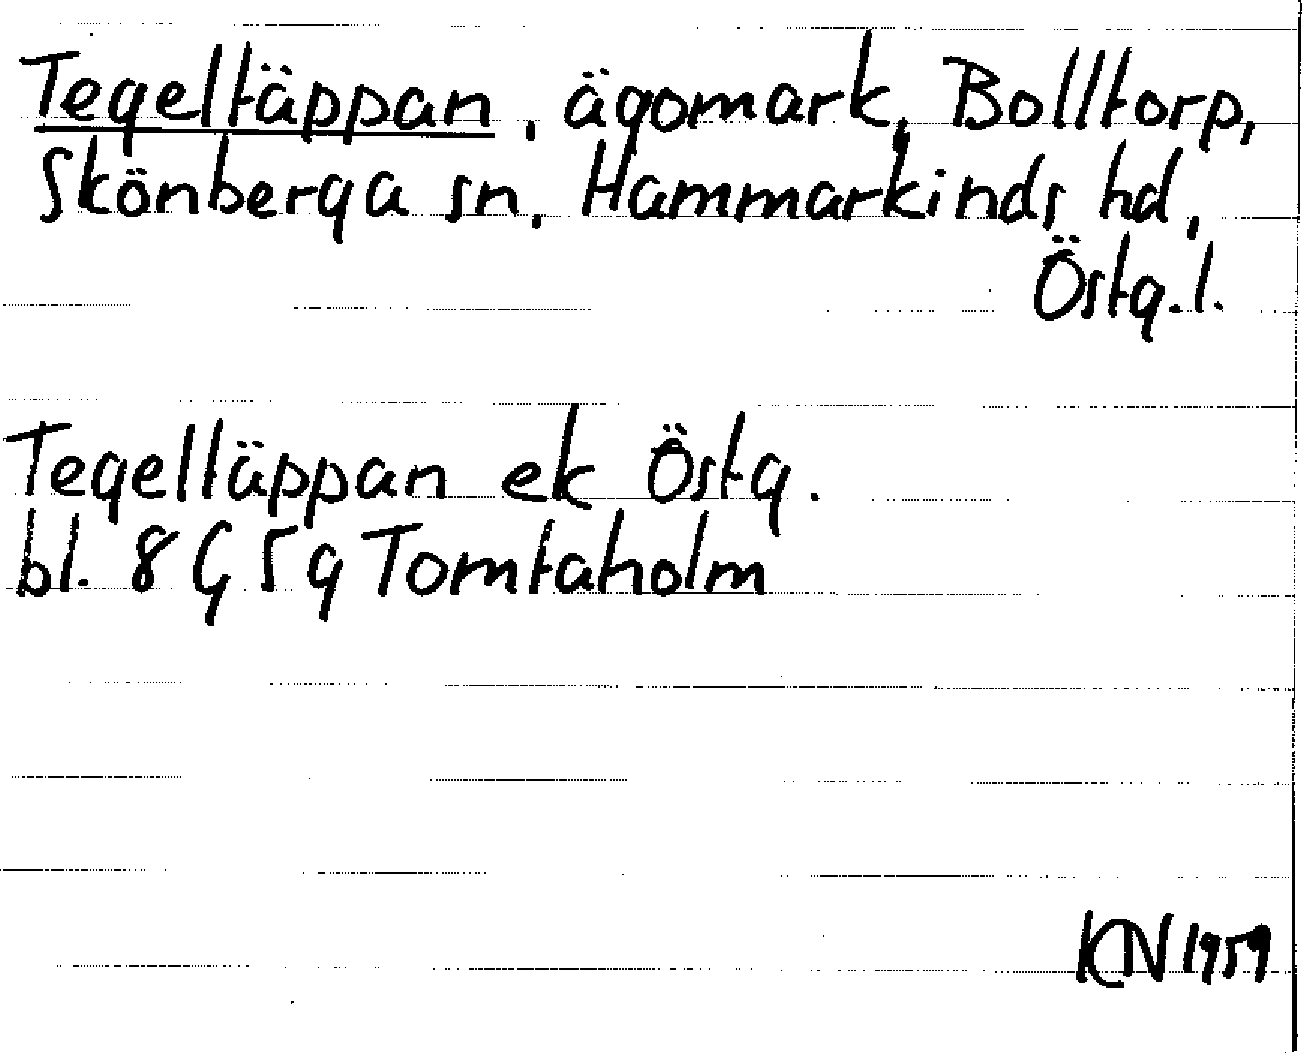 Tegeltäppan, ägomark, Bolltorp,
Skönberga sn, Hammarkinds hd,
Östg. l.
Tegeltäppan ek Östg.
bl. 8 G 5 g Tomtaholm
KN 1959